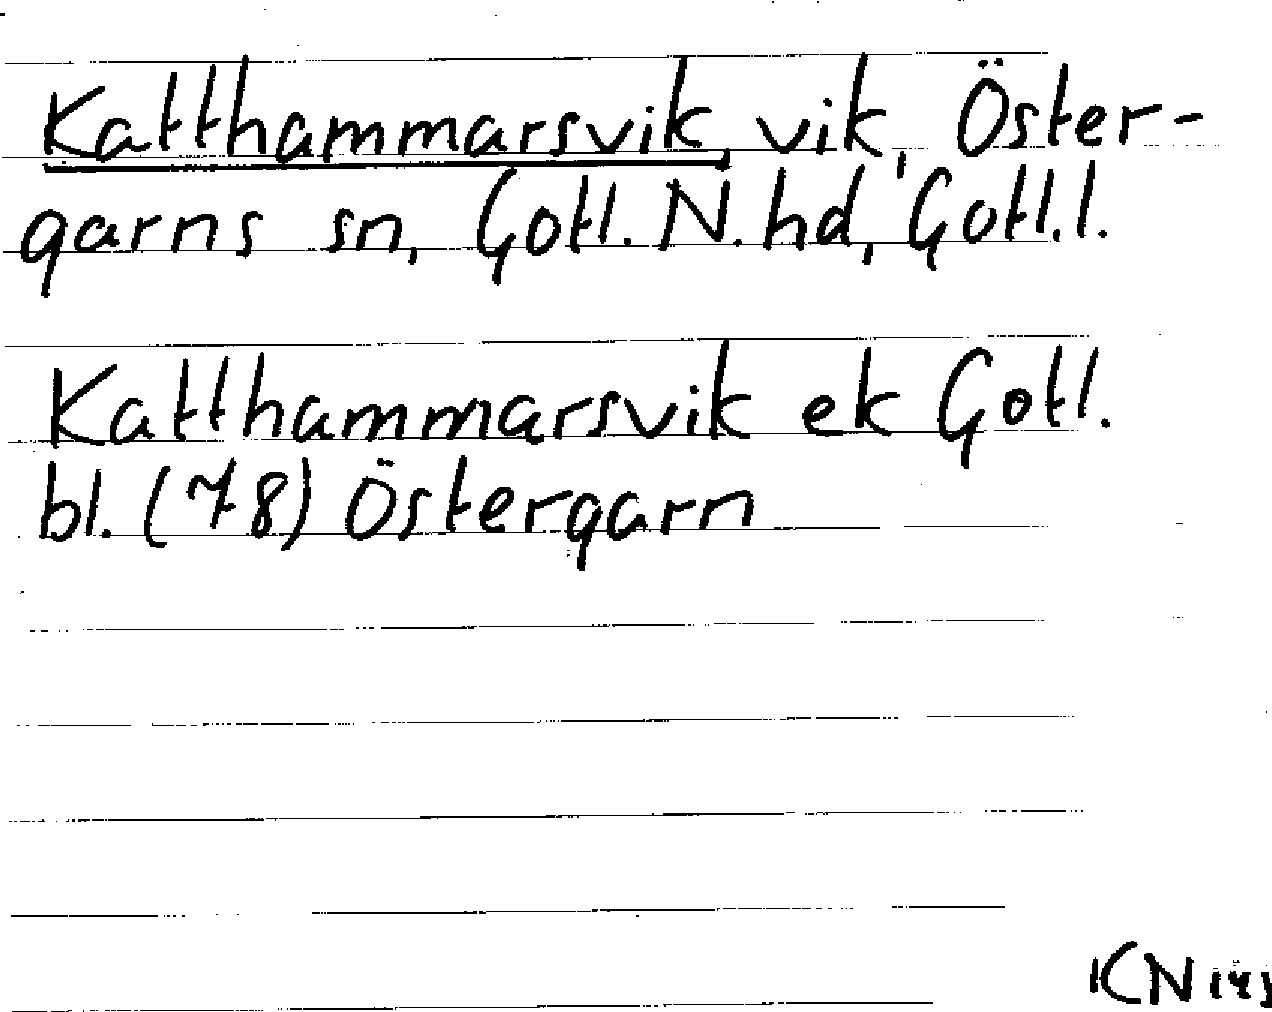 Katthammarsvik, vik, Öster-
garns sn, Gotl. N. hd, Gotl. l.
Katthammarsvik ek Gotl.
bl. (78) Östergarn